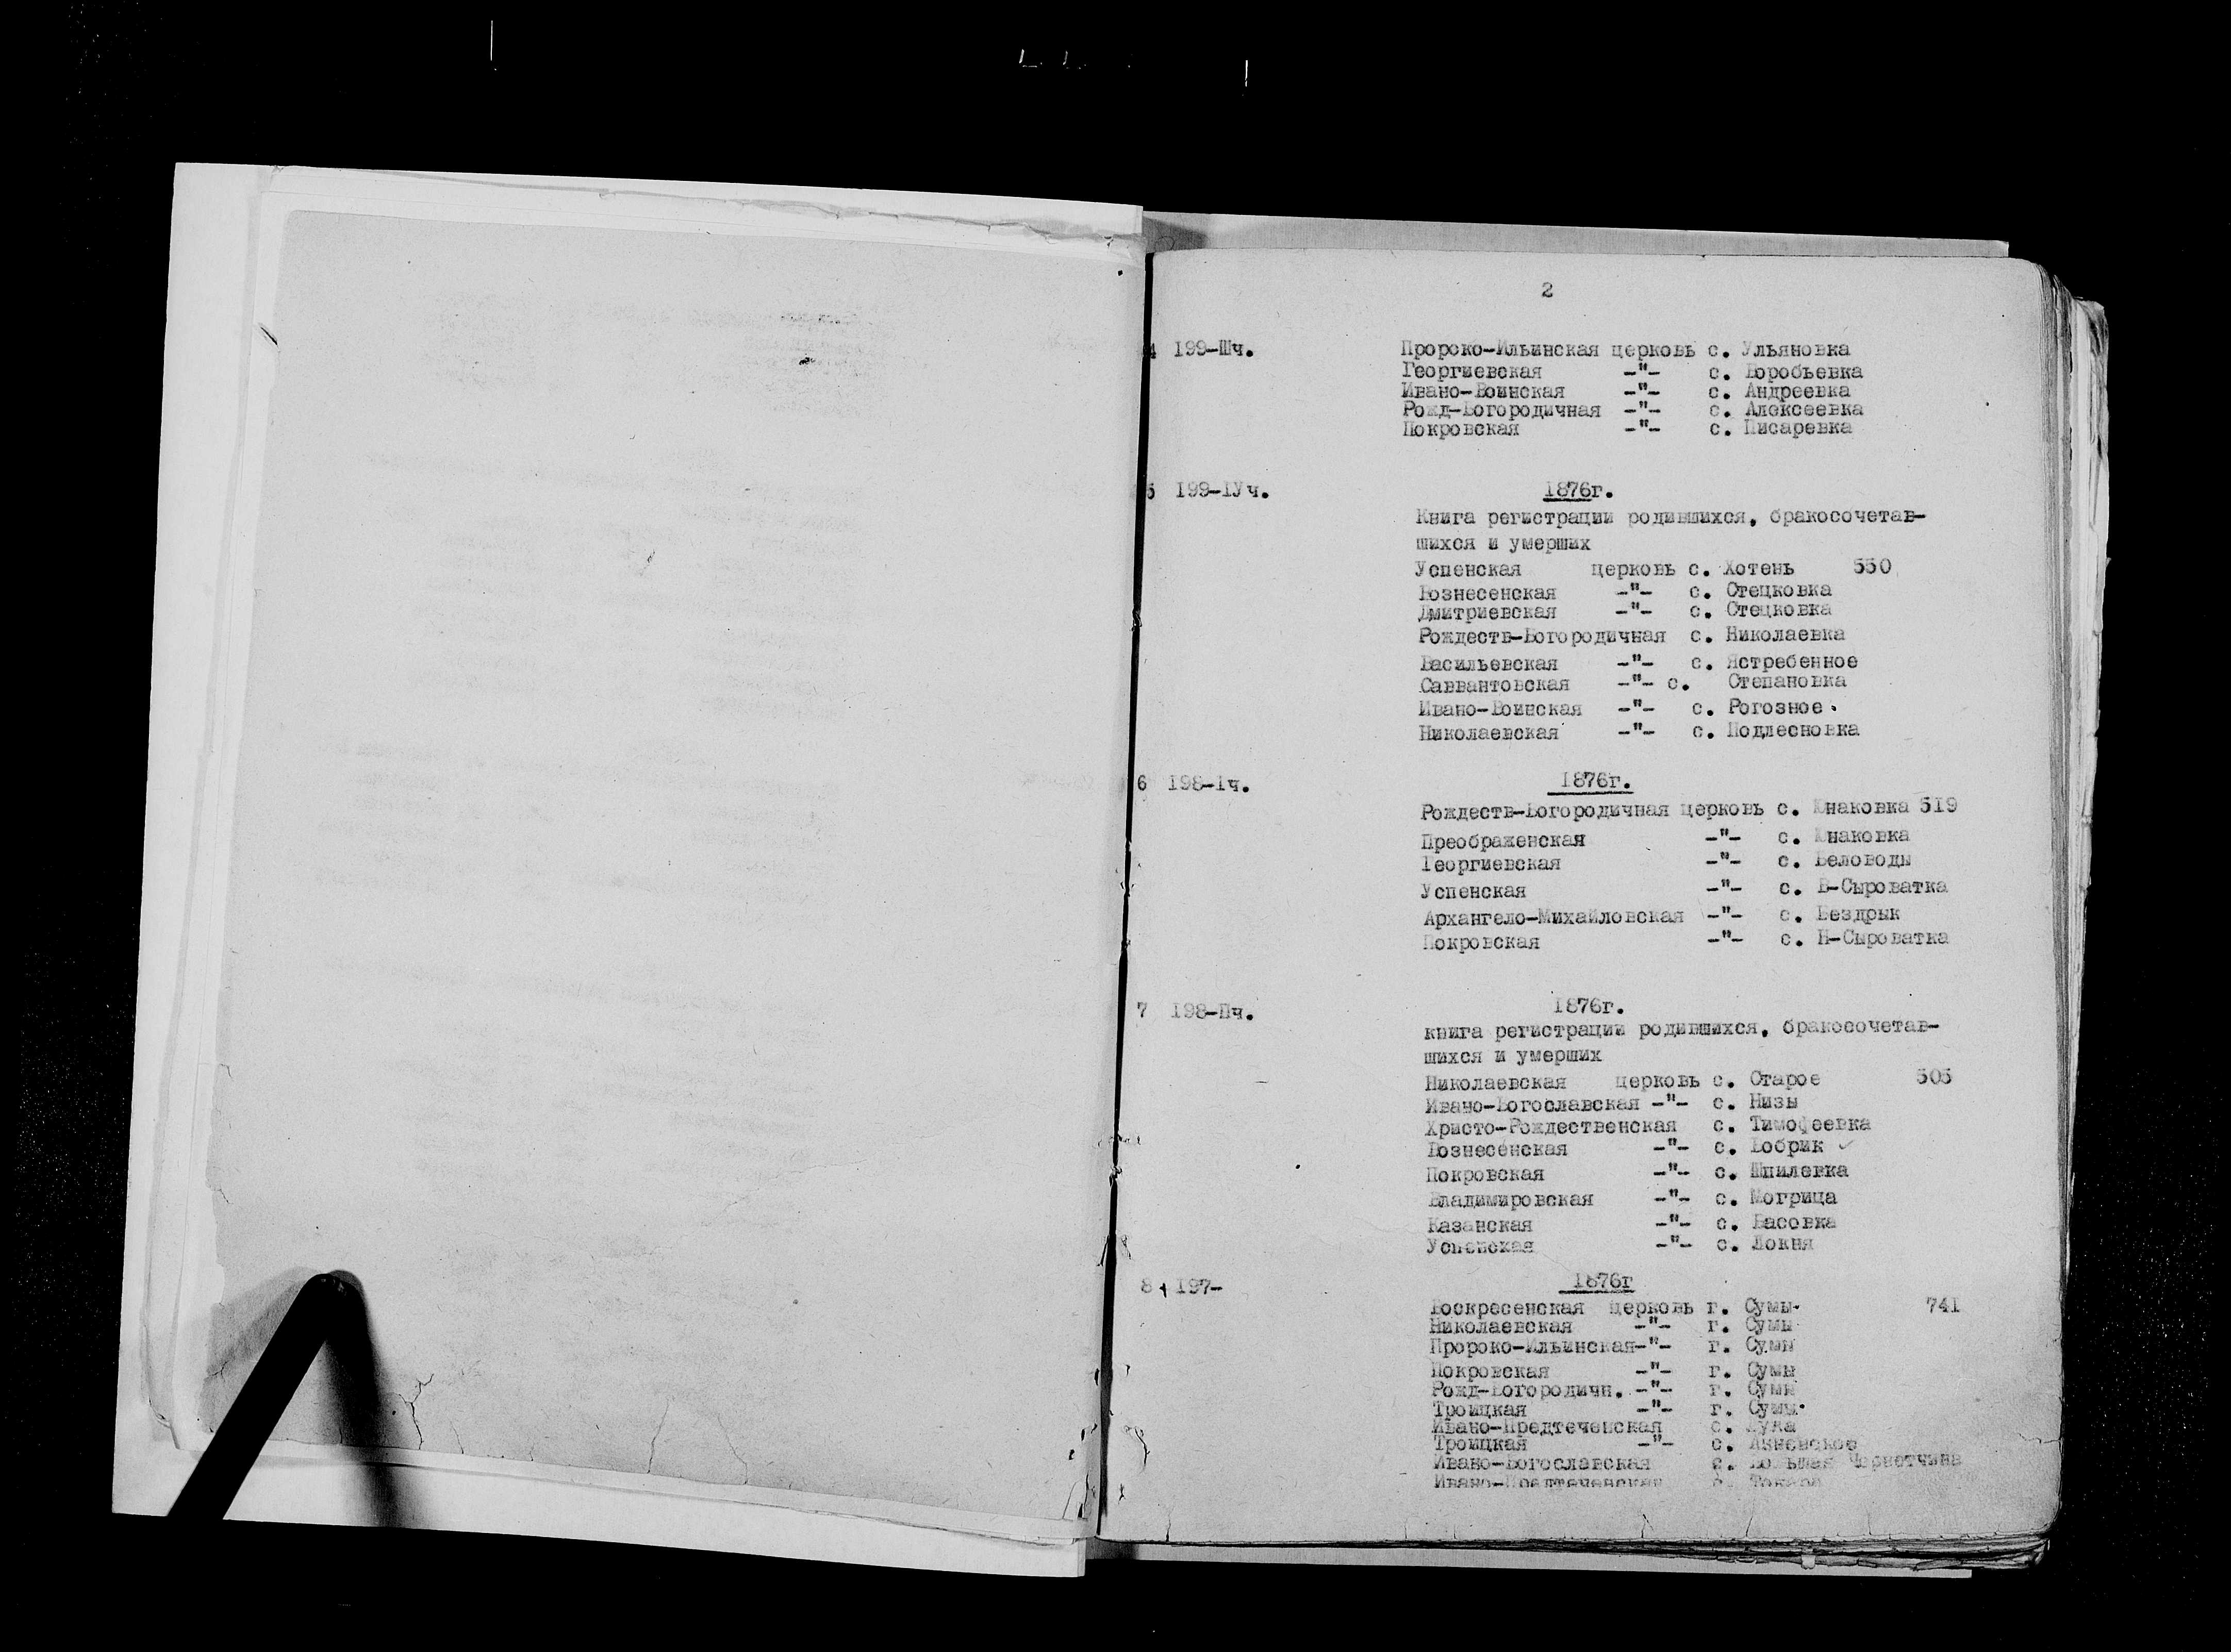 2
4 199-Шч. Пророко-Ильинская церковь с. Ульяновка
Георгиевская -"- с. Воробьевка
Ивано-Воинская -"- с. Андреевка
Рожд-Богородичная -"- с. Алексеевка
Покровская -"- с. Писаревка
5 199-1Уч. 1876г.
Книга регистрации родившихся, бракосочетав-
шихся и умерших
Успенская церковь с. Хотень 550
Вознесенская -"- с. Стецковка
Дмитриевская -"- с. Стецковка
Рождеств-Богородичная с. Николаевка
Васильевская -"- с. Ястребенное
Саввантовская -"- с. Степановка
Ивано-Воинская -"- с. Рогозное.
Николаевская -"- с. Подлесновка
6 198-1ч. 1876г.
Рождеств-Богородичная церковь с. Юнаковка 519
Преображенская -"- с. Юнаковка
Георгиевская -"- с. Беловоды
Успенская -"- с. В-Сыроватка
Архангело-Михайловская -"- с. Бездрык
Покровская -"- с. Н-Сыроватка
7 198-Пч. 1876г.
книга регистрации родившихся, бракосочетав-
шихся и умерших
Николаевская церковь с. Старое 505
Ивано-Богославская -"- с. Низы
Христо-Рождественская с. Тимофеевка
Вознесенская -"- с. Бобрик ✓
Покровская -"- с. Шпилевка
Владимировская -"- с. Могрица
Казанская -"- с. Басовка
Успенская -"- с. Локня
8 197- 1876г
Воскресенская церковь г. Сумы 741
Николаевская -"- г. Сумы
Пророко-Ильинская-"- г. Сумы
Покровская -"- г. Сумы
Рожд-Богородичн. -"- г. Сумы
Троицкая -"- г. Сумы
Ивано-Предтеченская с. Лука
Троицкая -"- с.
Ивано-Богославская с. Большая Чернетчина
Ивано-Предтеченская с. Токари